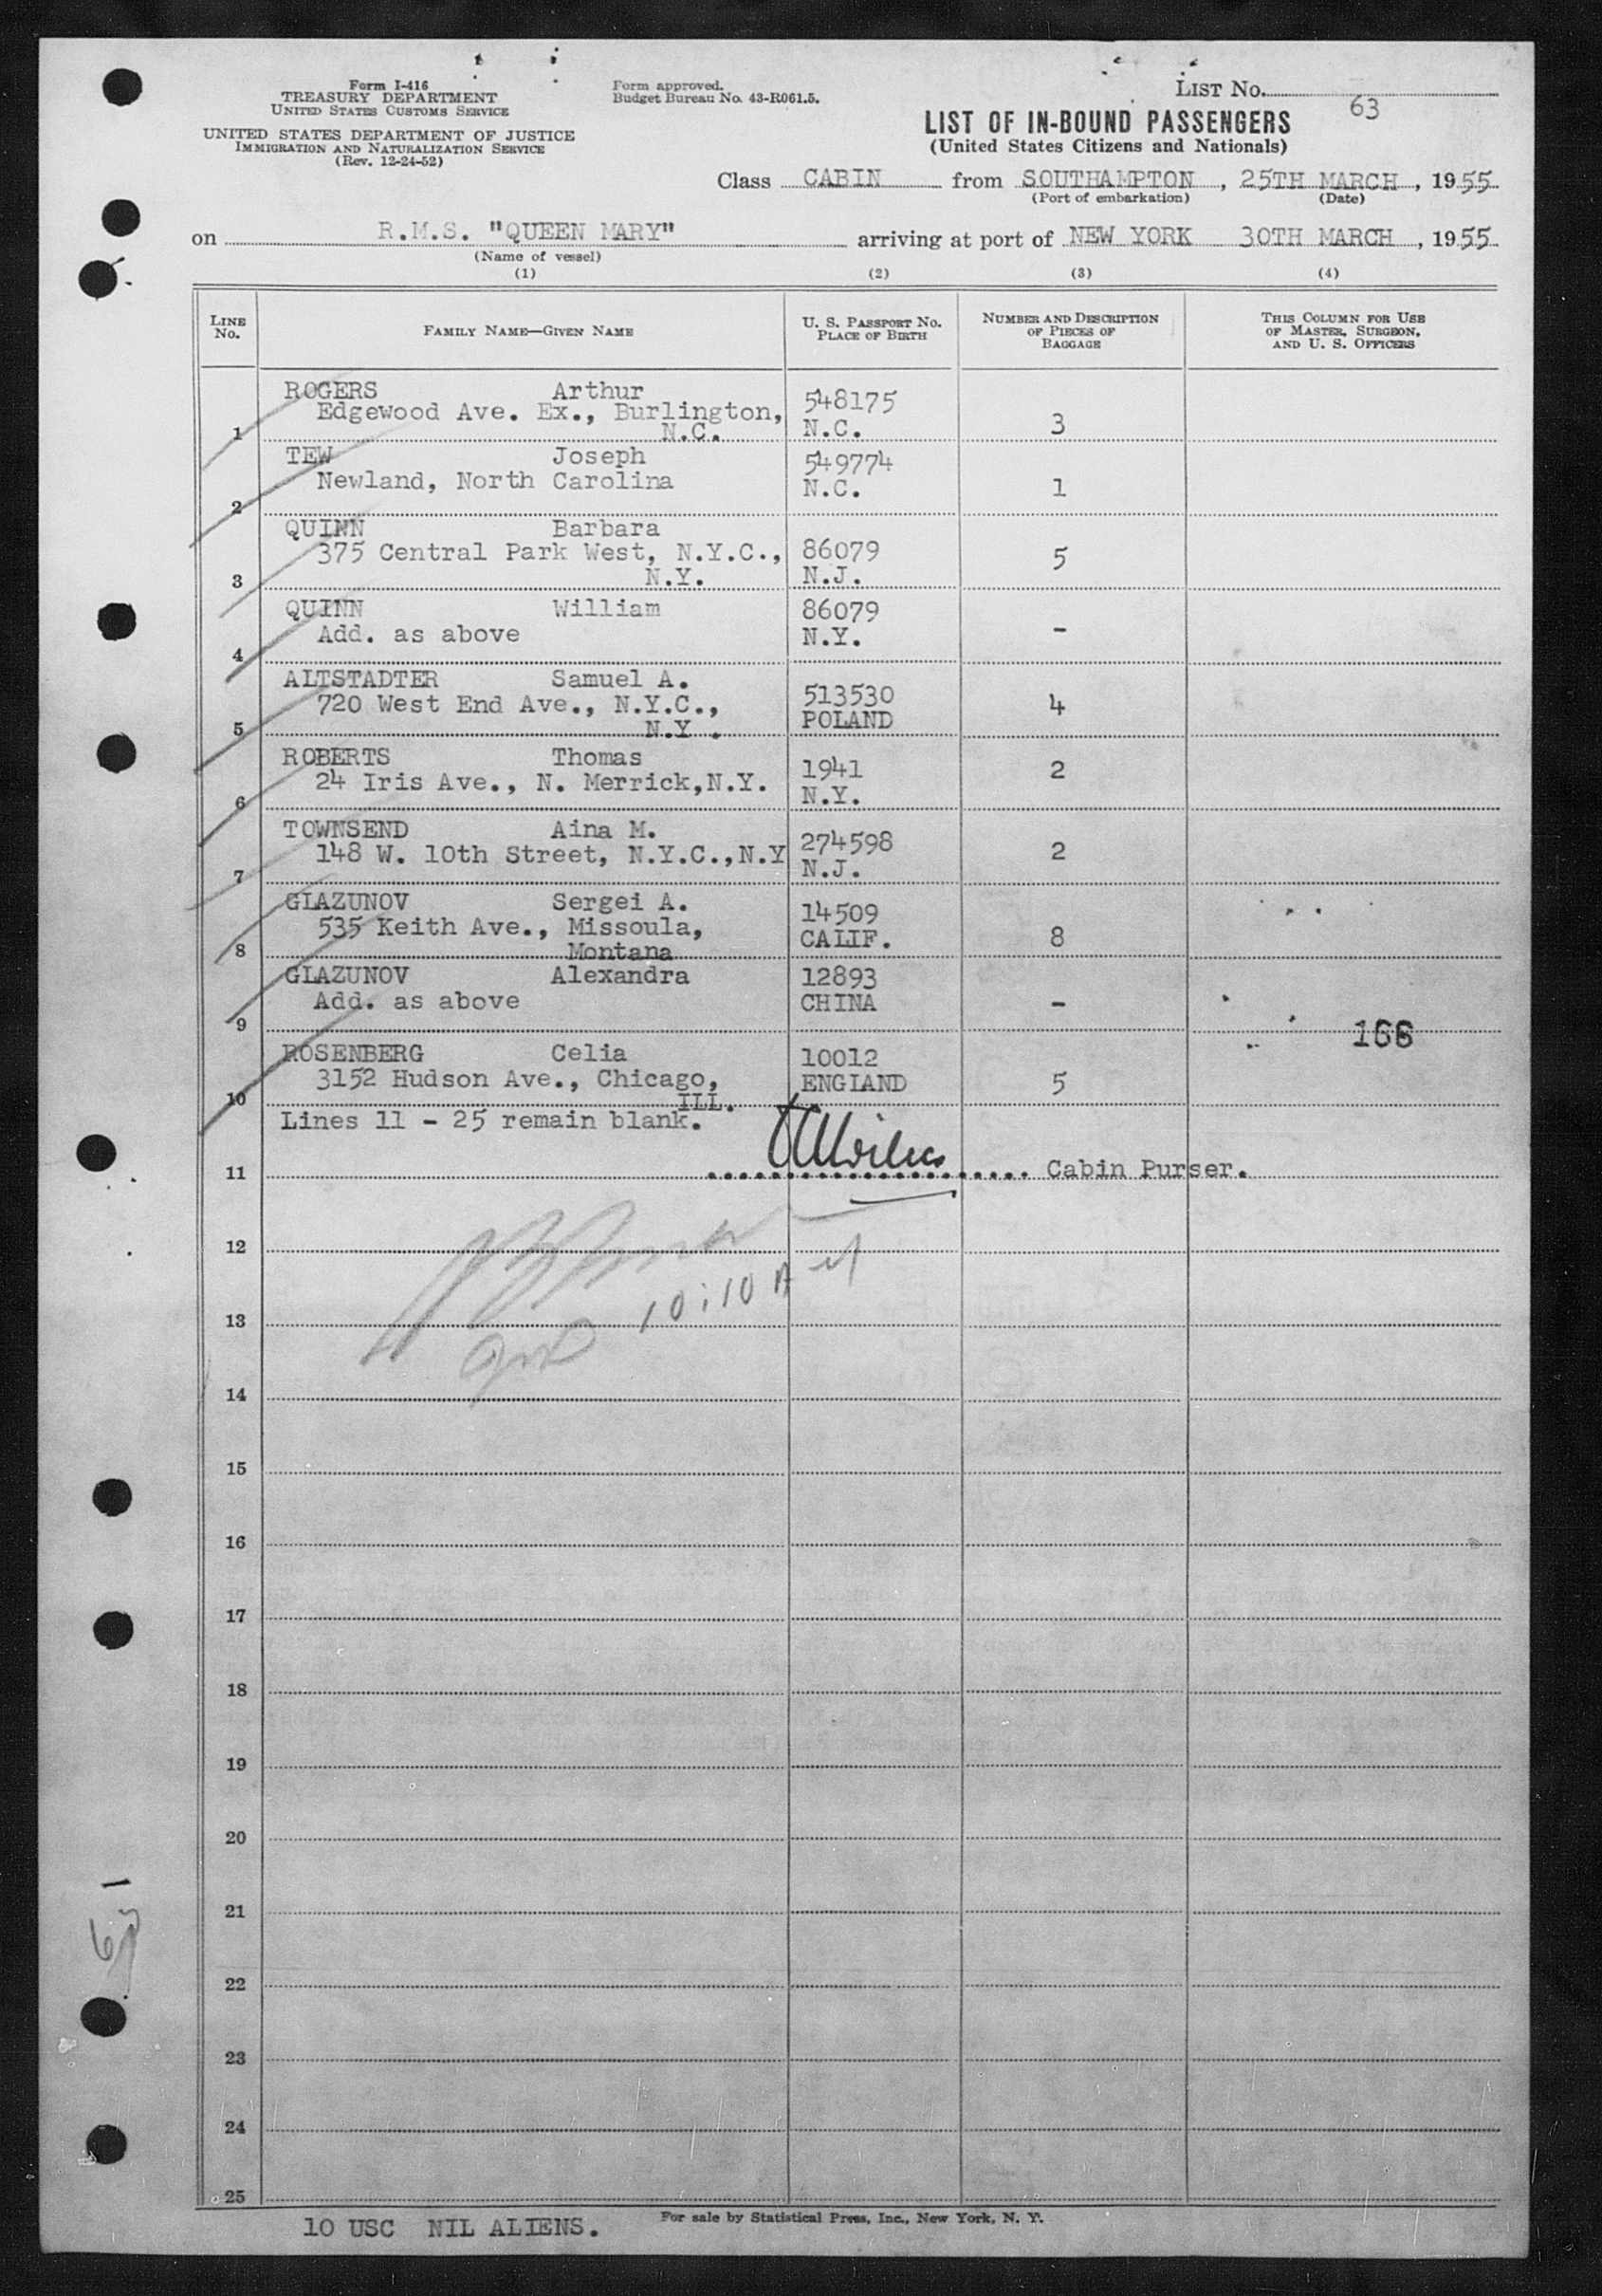 Form I-416
TREASURY DEPARTMENT
UNITED STATES CUSTOMS SERVICE
UNITED STATES DEPARTMENT OF JUSTICE
IMMIGRATION AND NATURALIZATION SERVICE
(Rev. 12-24-52)
Form approved.
Budget Bureau No. 43-R061.5.
LIST NO.
63
LIST OF IN-BOUND PASSENGERS
(United States Citizens and Nationals)
Class CABIN from SOUTHAMPTON, 25TH MARCH, 1955
(Port of embarkation) (Date)
on R.M.S. "QUEEN MARY" arriving at port of NEW YORK 30TH MARCH, 1955
(Name of vessel)
(1) (2) (3) (4)
LINE NO. FAMILY NAME—GIVEN NAME U. S. PASSPORT NO. PLACE OF BIRTH NUMBER AND DESCRIPTION OF PIECES OF BAGGAGE THIS COLUMN FOR USE OF MASTER, SURGEON, AND U. S. OFFICERS
ROGERS Arthur 548175
Edgewood Ave. Ex., Burlington,
1 N.C. N.C. 3
TEW Joseph 549774
Newland, North Carolina N.C. 1
2
QUINN Barbara
375 Central Park West, N.Y.C., 86079 5
3 N.Y. N.J.
QUINN William 86079
Add. as above N.Y. -
4
ALTSTADTER Samuel A. 513530
720 West End Ave., N.Y.C., POLAND 4
5 N.Y.
ROBERTS Thomas 1941 2
24 Iris Ave., N. Merrick,N.Y. N.Y.
6
TOWNSEND Aina M. 274598
148 W. 10th Street, N.Y.C.,N.Y N.J. 2
7
GLAZUNOV Sergei A. 14509
535 Keith Ave., Missoula, CALIF. 8
8 Montana
GLAZUNOV Alexandra 12893
Add. as above CHINA -
9
166
ROSENBERG Celia 10012
3152 Hudson Ave., Chicago, ENGLAND 5
10 ILL.
Lines 11 - 25 remain blank.
11 Cabin Purser.
12
10:10 A
13
14
15
16
17
18
19
20
21
22
23
24
25
10 USC NIL ALIENS.
For sale by Statistical Press, Inc., New York, N. Y.